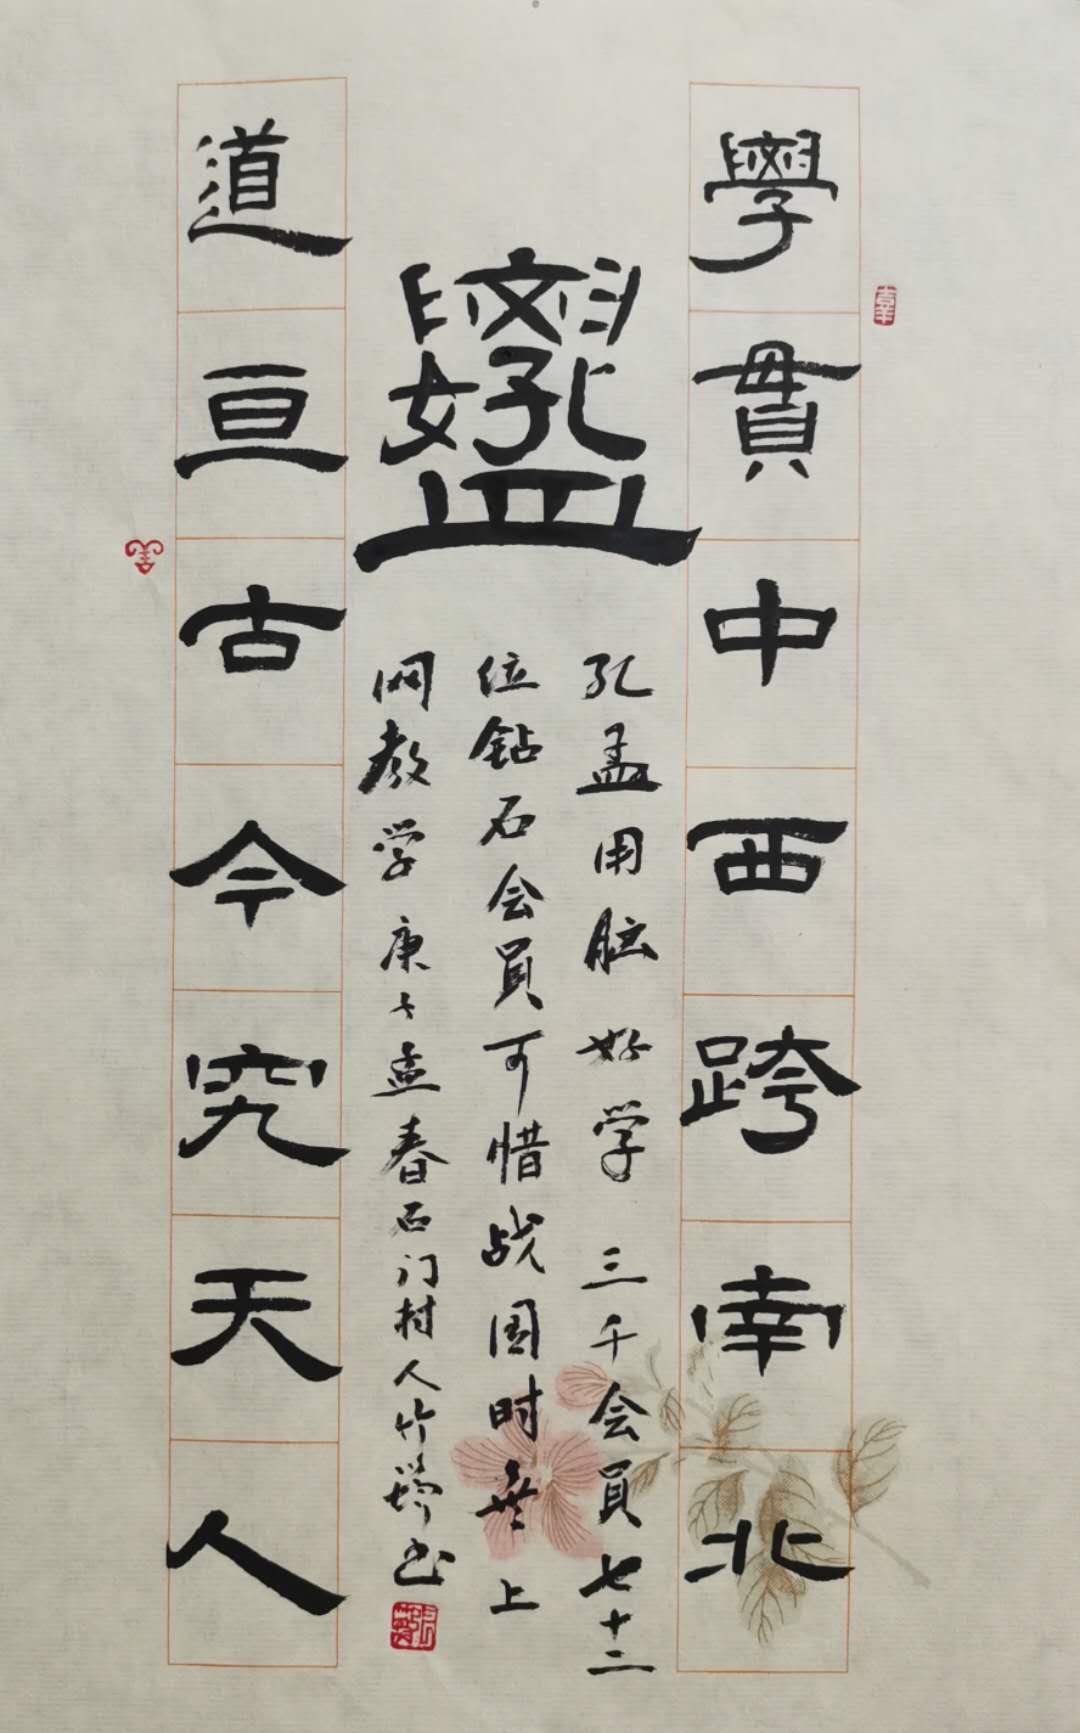 學貫中西跨南北
孔孟用脑好学 三千会員七十二
位钻石会員可惜战国时無上
网教学庚子孟春石门村人竹书
道亘古今究天人